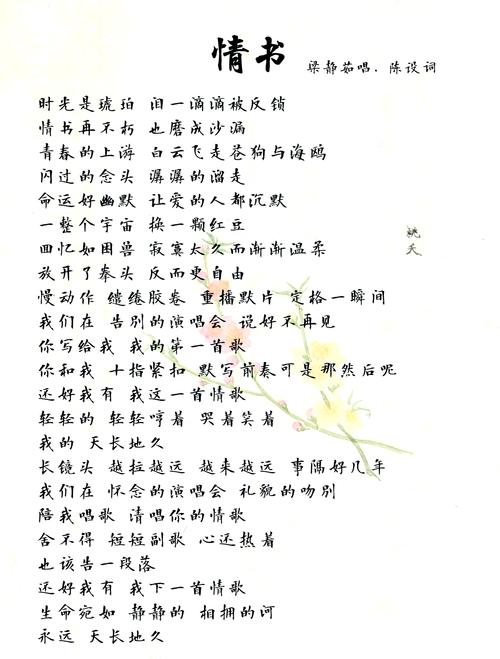 情书 梁静茹唱.陈设词
时光是琥珀 泪一滴滴被反锁
情书再不朽 也磨成沙漏
青春的上游 白云飞走苍狗与海鸥
闪过的念头 潺潺的溜走
命运好幽默 让爱的人都沉默
一整个宇宙 换一颗红豆
回忆如困兽 寂寞太久而渐渐温柔
放开了拳头 反而更自由
慢动作 缱绻胶卷 重播默片 定格一瞬间
我们在 告别的演唱会 说好不再见
你写给我 我的第一首歌
你和我 十指紧扣 默写前奏可是那然后呢
还好我有 我这一首情歌
轻轻的 轻轻哼着 哭着笑着
我的 天长地久
长镜头 越拉越远 越来越远 事隔好几年
我们在 怀念的演唱会 礼貌的吻别
陪我唱歌 清唱你的情歌
舍不得 短短副歌 心还热着
也该告一段落
还好我有 我下一首情歌
生命宛如 静静的 相拥的河
永远 天长地久